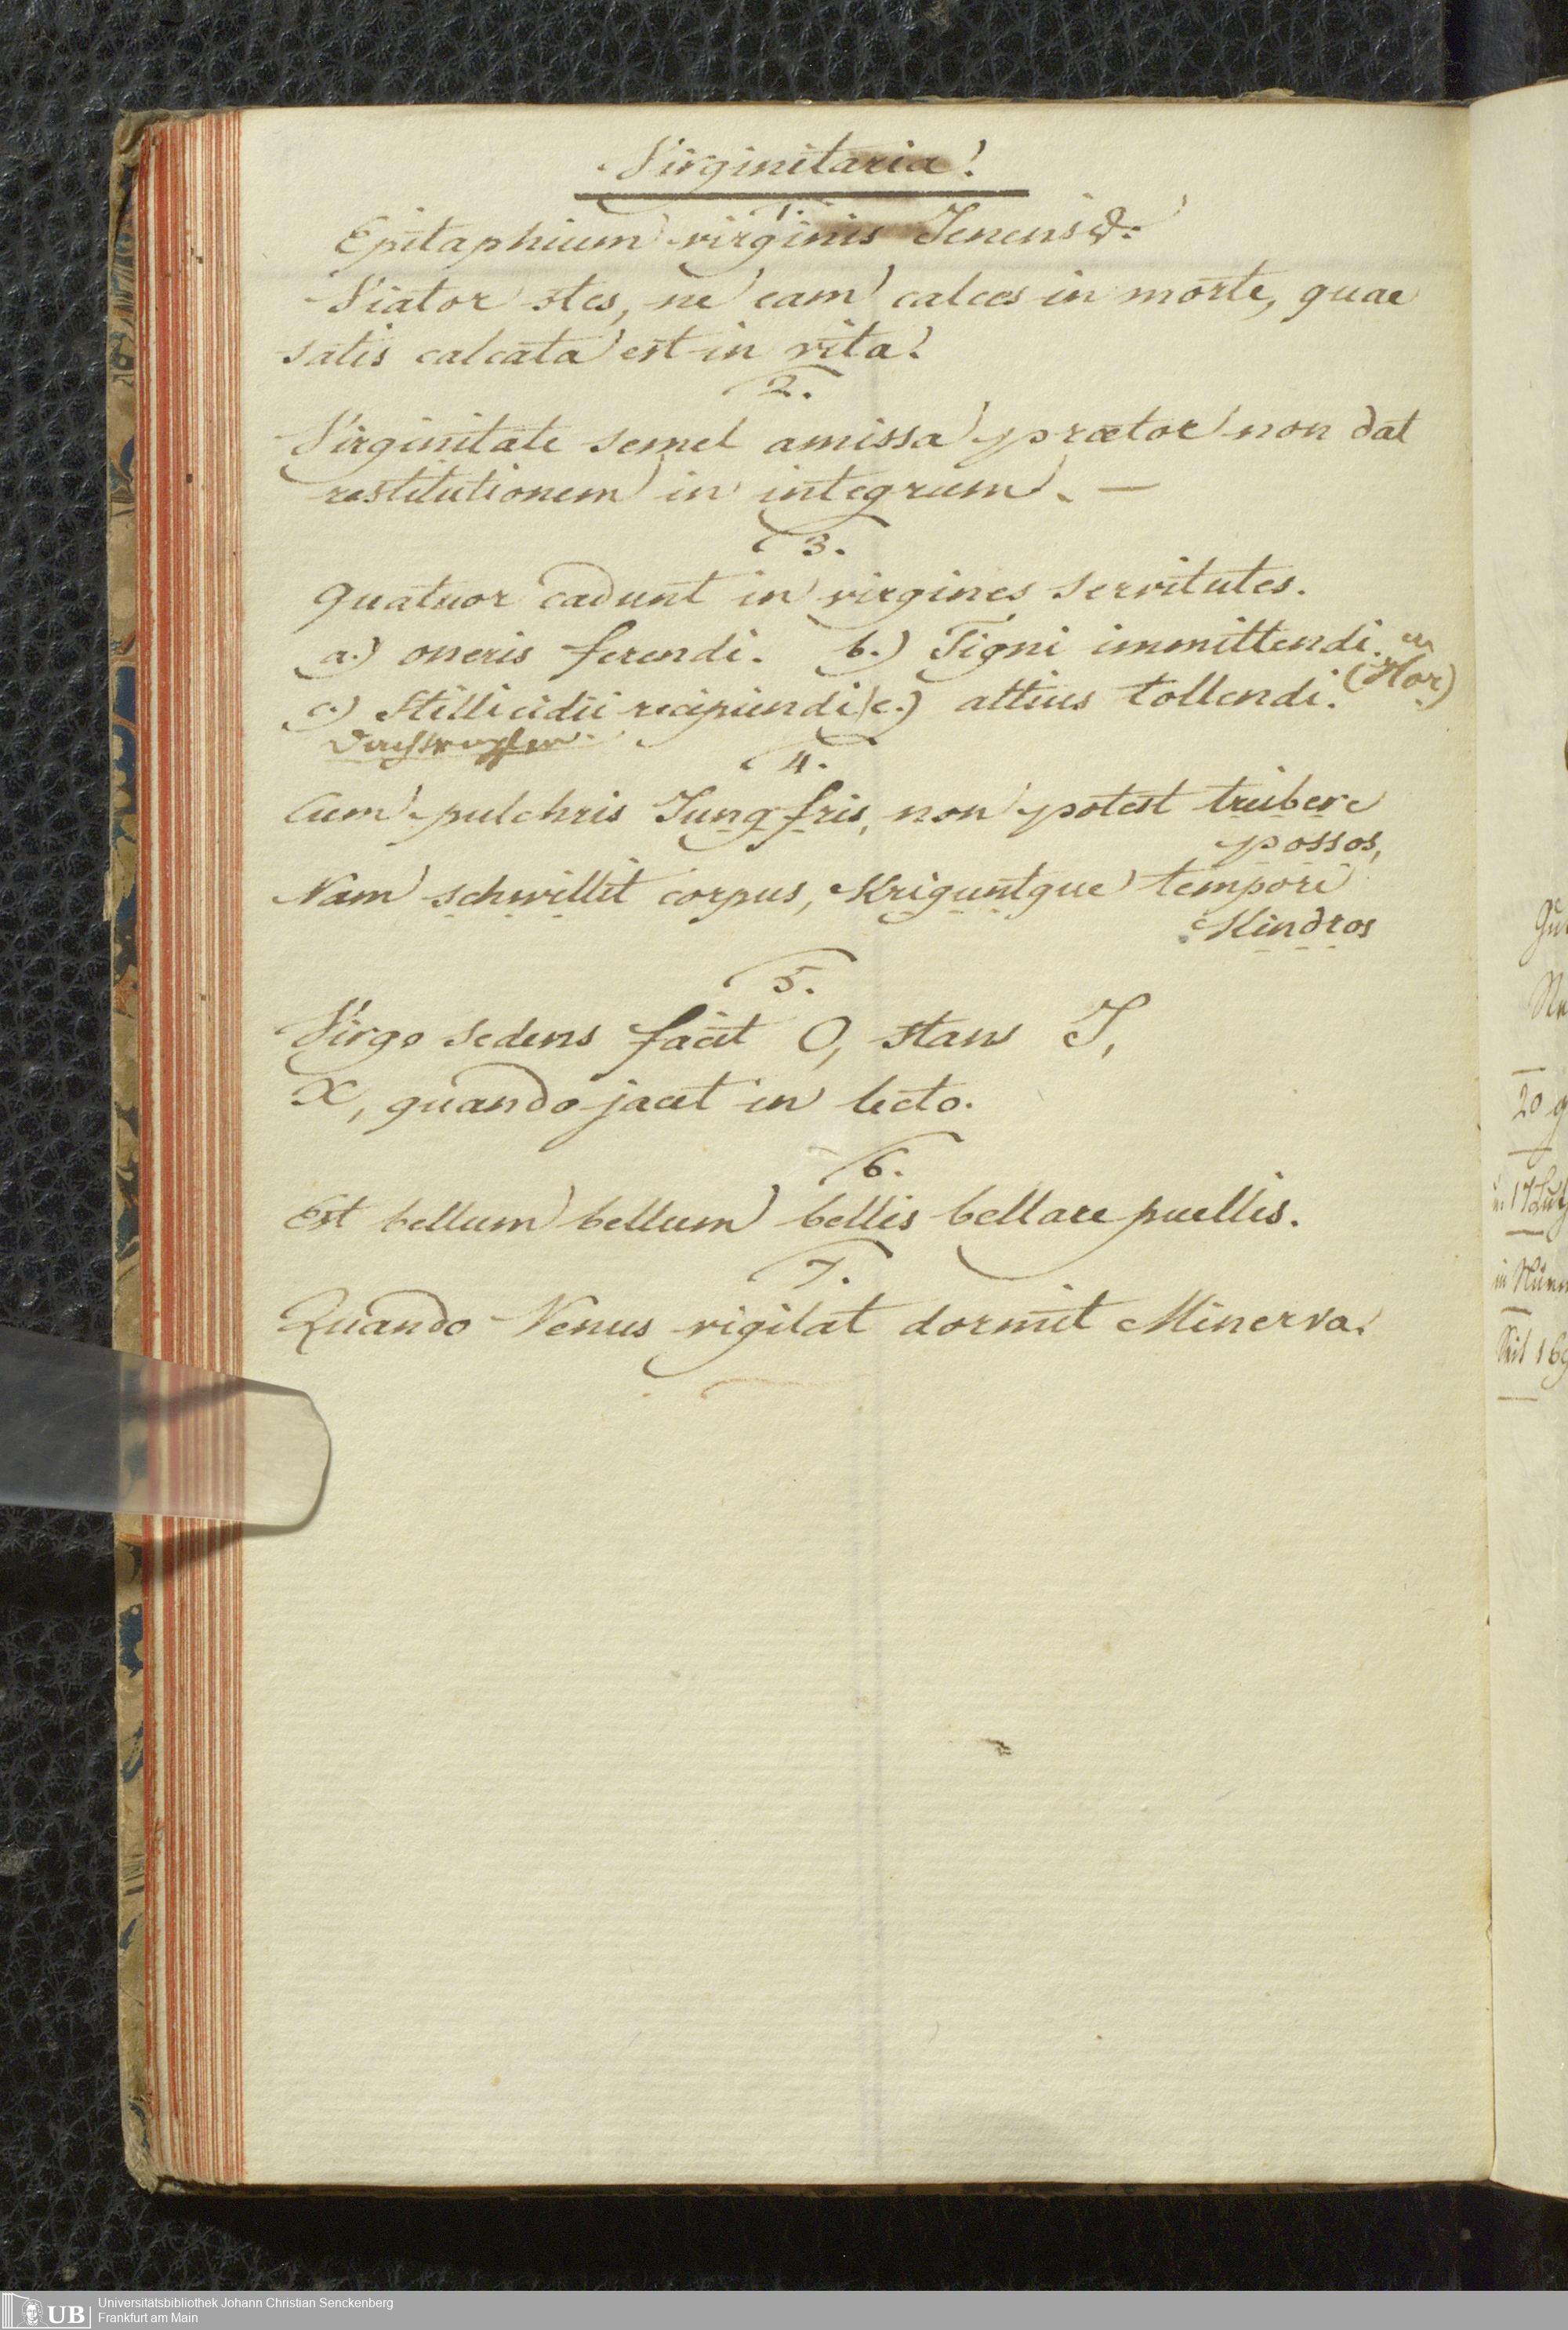 Virginitaria!
1.
Epitaphium virginis Jenensis.
Viator stes, ne eam calces in morte, quae
satis calcata est in vita!
2.
Virginitate semel amissa praetor non dat
restitutionem in integrum. —
3.
Quatuor cadunt in virgines servitutes.
a.) oneris ferendi. b.) Tigni immittendi.
c.) Stillicidii recipiendi c.) altius tollendi. (Hor)
4.
Cum pulchris Jungfris, non potest trubere
possos,
Nam schwillit corpus, Kriguntque tempori
Kindros
5.
Virgo sedens facit O, stans I,
X, quando jacet in lecto.
6.
Est bellum bellum bellis bellare puellis.
7.
Quando Venus vigilat dormit Minerva.
20
17
169
UB
Universitätsbibliothek Johann Christian Senckenberg
Frankfurt am Main